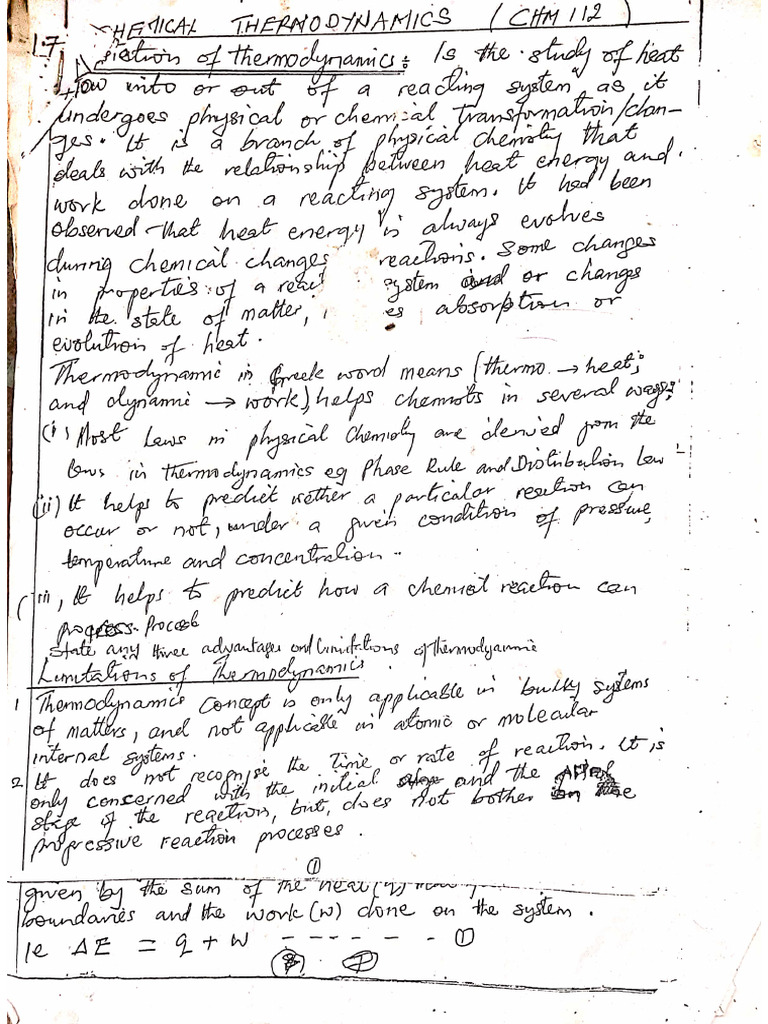 CHEMICAL THERMODYNAMICS (CHM 112)
1.7
of thermodynamics: Is the study of heat
flow into or out of a reacting system as it
undergoes physical or chemical transformation/chan-
ges. It is a branch of physical chemisty that
deals with the relationship between heat energy and
work done on a reacting system. It had been
observed that heat energy is always evolves
during chemical changes reactions. Some changes
in properties of a reac ystem and or change
in the state of matter, es absorption or
evolution of heat.
Thermodynamic in Greek word means (thermo → heat;
and dynamic → work), helps chemists in several ways;
(i) Most Laws in physical Chemisty are derived from the
laws in thermodynamics eg Phase Rule and Distribution Law
(ii) It helps to predict wether a particular reaction can
occur or not, under a given condition of pressure,
temperature and concentration..
(iii, It helps to predict how a chemical reaction can
process. Proceed
State any three advantages and limitations of Thermodyanmic
Limitations of Thermodynamics
1 Thermodynamics Concept is only applicable in bulky systems
of matters, and not applicable in atomic or molecular
internal systems.
2 It does not recognise the time or rate of reaction. It is
only concerned with the initial and the
stage of the reaction, but, does not bother in the
progressive reaction processes.
①
given by the sum of the heat (q)
boundaries and the work (w) done on the system.
ie ΔE = q + w ------ ①